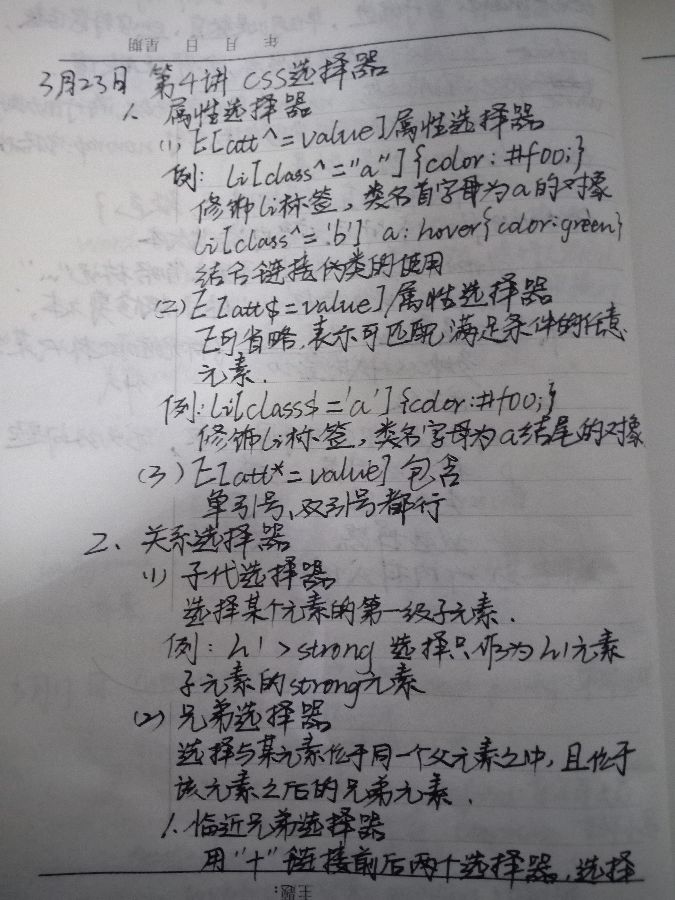 年 月 日 星期
3月23日 第4讲 CSS选择器
1. 属性选择器
(1) E[att^=value]属性选择器
例: li[class^="a"]{color:#f00;}
修饰li标签,类名首字母为a的对象
li[class^='b'] a:hover{color:green}
结合链接伪类的使用
(2) E[att$=value]属性选择器
E可省略,表示可匹配满足条件的任意
元素.
例:li[class$='a']{color:#f00;}
修饰li标签,类名字母为a结尾的对象
(3) E[att*=value] 包含
单引号、双引号都行
2、关系选择器
(1) 子代选择器
选择某个元素的第一级子元素.
例: h1>strong 选择只作为h1元素
子元素的strong元素
(2) 兄弟选择器
选择与某元素位于同一个父元素之中,且位于
该元素之后的兄弟元素.
1.临近兄弟选择器
用"+"链接前后两个选择器,选择
主题: